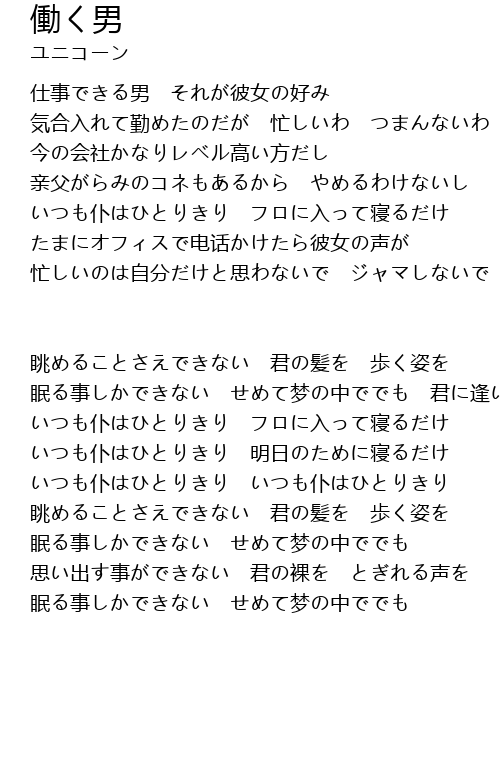 働く男
ユニコーン
仕事できる男　それが彼女の好み
気合入れて勤めたのだが　忙しいわ　つまんないわ
今の会社かなりレベル高い方だし
亲父がらみのコネもあるから　やめるわけないし
いつも仆はひとりきり　フロに入って寝るだけ
たまにオフィスで电话かけたら彼女の声が
忙しいのは自分だけと思わないで　ジャマしないで
眺めることさえできない　君の髪を　歩く姿を
眠る事しかできない　せめて梦の中ででも　君に逢い
いつも仆はひとりきり　フロに入って寝るだけ
いつも仆はひとりきり　明日のために寝るだけ
いつも仆はひとりきり　いつも仆はひとりきり
眺めることさえできない　君の髪を　歩く姿を
眠る事しかできない　せめて梦の中ででも
思い出す事ができない　君の裸を　とぎれる声を
眠る事しかできない　せめて梦の中ででも